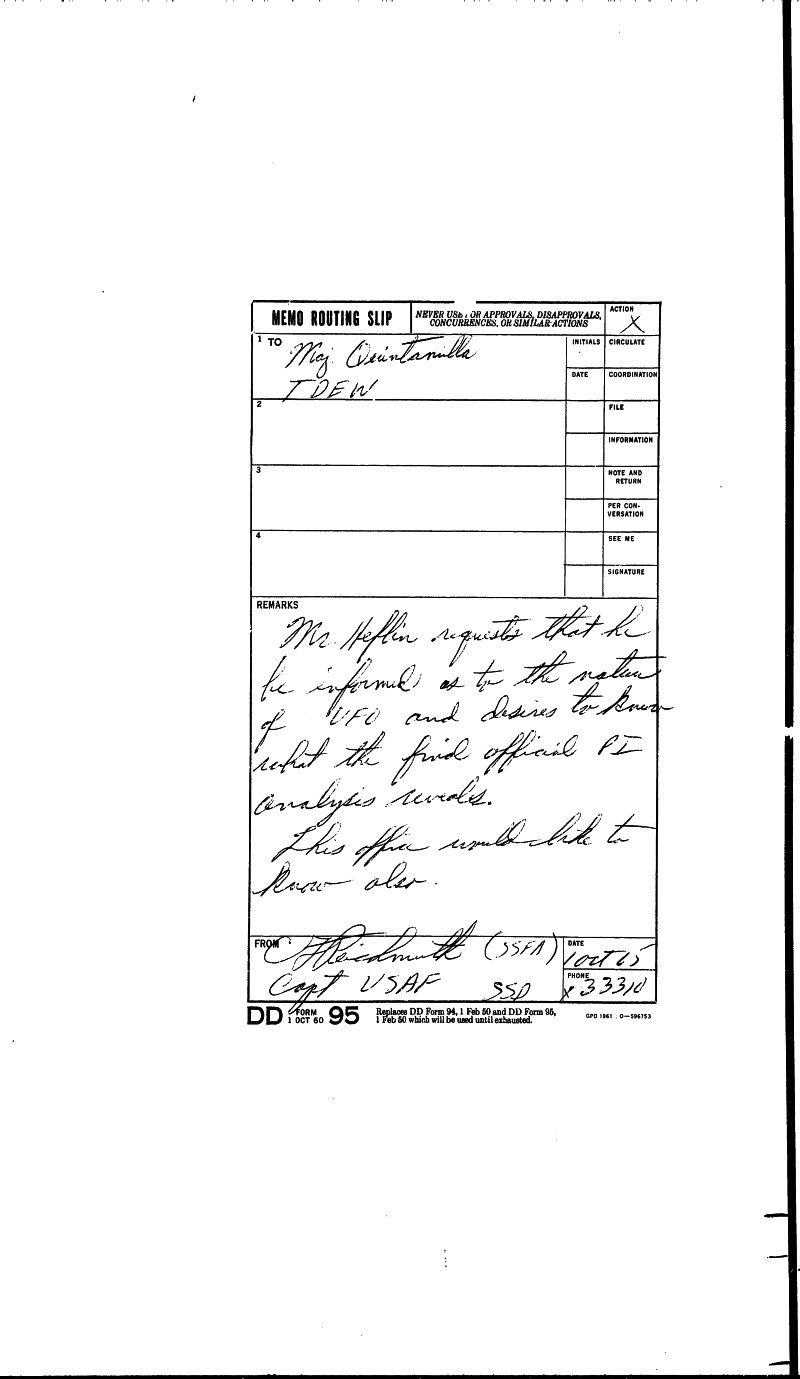 MEMO ROUTING SLIP
NEVER USE FOR APPROVALS, DISAPPROVALS,
CONCURRENCES, OR SIMILAR ACTIONS
ACTION
X
1 TO
Maj. Quintanilla
TDEW
INITIALS
CIRCULATE
DATE
COORDINATION
2
FILE
INFORMATION
3
NOTE AND
RETURN
PER CON-
VERSATION
4
SEE ME
SIGNATURE
REMARKS
Mr. Heflin requests that he
be informed as to the nature
of UFO and desires to know
what the final official PI
analysis reveals.
This office would like to
know also.
FROM
(SSFA)
DATE
1 Oct 65
Capt USAF SSD
PHONE
x 33310
DD FORM 1 OCT 60 95
Replaces DD Form 94, 1 Feb 50 and DD Form 95,
1 Feb 50 which will be used until exhausted.
GPO 1961 : O—596753